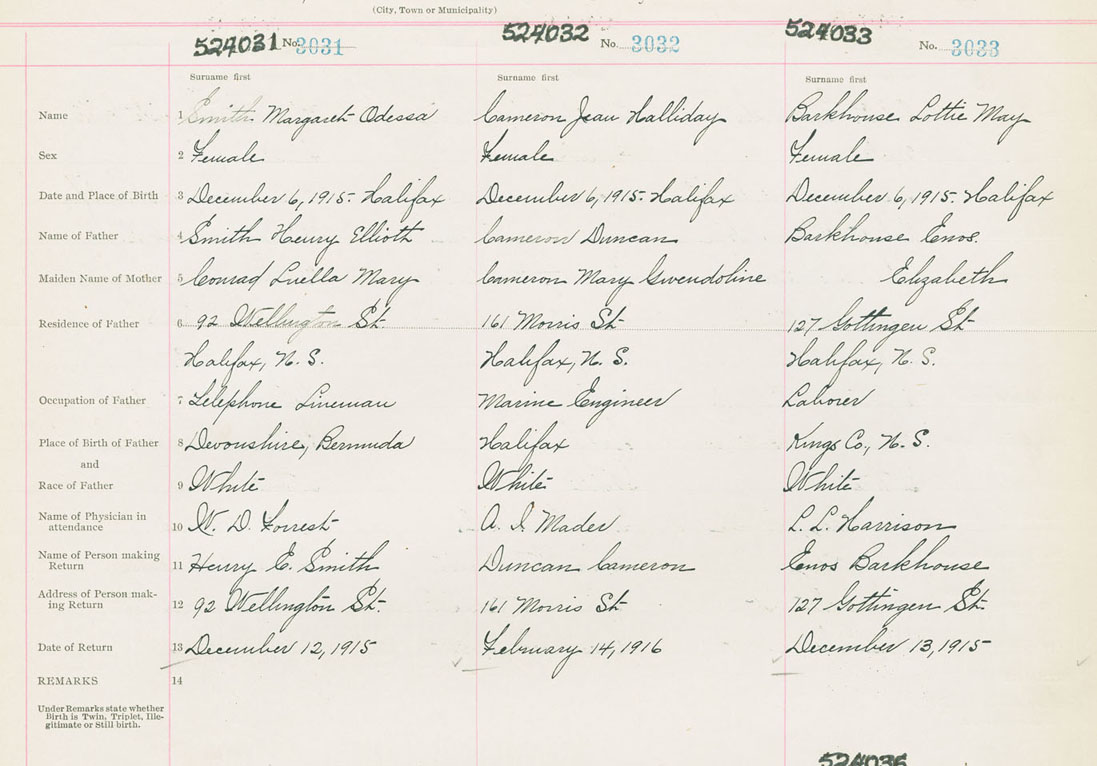 (City, Town or Municipality)
524031 No. 3031 524032 No. 3032 524033 No. 3033
Surname first Surname first Surname first
Name 1 Smith Margaret Odessa Cameron Jean Halliday Barkhouse Lottie May
Sex 2 Female Female Female
Date and Place of Birth 3 December 6, 1915- Halifax December 6, 1915- Halifax December 6, 1915- Halifax
Name of Father 4 Smith Henry Elliott Cameron Duncan Barkhouse Enos.
Maiden Name of Mother 5 Conrad Luella Mary Cameron Mary Gwendoline Elizabeth
Residence of Father 6 92 Wellington St. 161 Morris St 127 Gottingen St
Halifax, N. S. Halifax, N. S. Halifax, N. S.
Occupation of Father 7 Telephone Lineman Marine Engineer Laborer
Place of Birth of Father 8 Devonshire, Bermuda Halifax Kings Co., N. S.
and
Race of Father 9 White White White
Name of Physician in
attendance 10 W. D. Forrest A. I. Mader L. L. Harrison
Name of Person making
Return 11 Henry E. Smith Duncan Cameron Enos Barkhouse
Address of Person mak-
ing Return 12 92 Wellington St. 161 Morris St 127 Gottingen St.
Date of Return 13 December 12, 1915 February 14, 1916 December 13, 1915
REMARKS 14
Under Remarks state whether
Birth is Twin, Triplet, Ille-
gitimate or Still birth.
524036